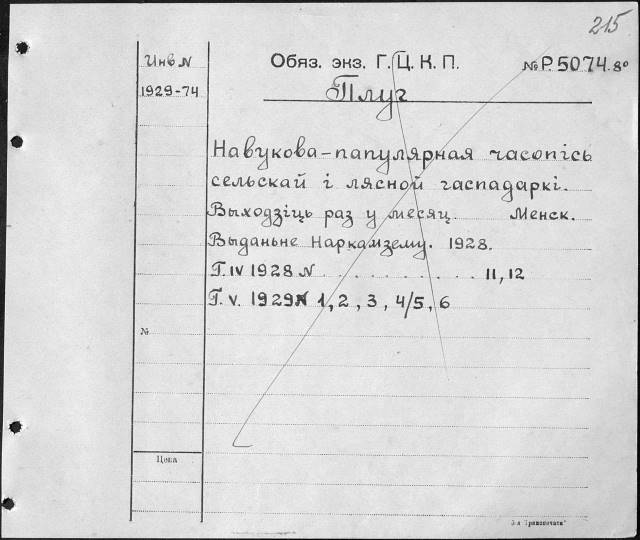 215
Инв N
Обяз. экз. Г. Ц. К. П.
№Р. 5074.8°
1929-74
Плуг
Навукова-папулярная часопісь
сельскай і лясной гаспадаркі.
Выходзіць раз у месяц. Менск.
Выданьне Наркамзему. 1928.
Г. IV 1928 N . . . . . . . . . . 11, 12
Г. V. 1929 N 1, 2, 3, 4/5, 6
№
Цена